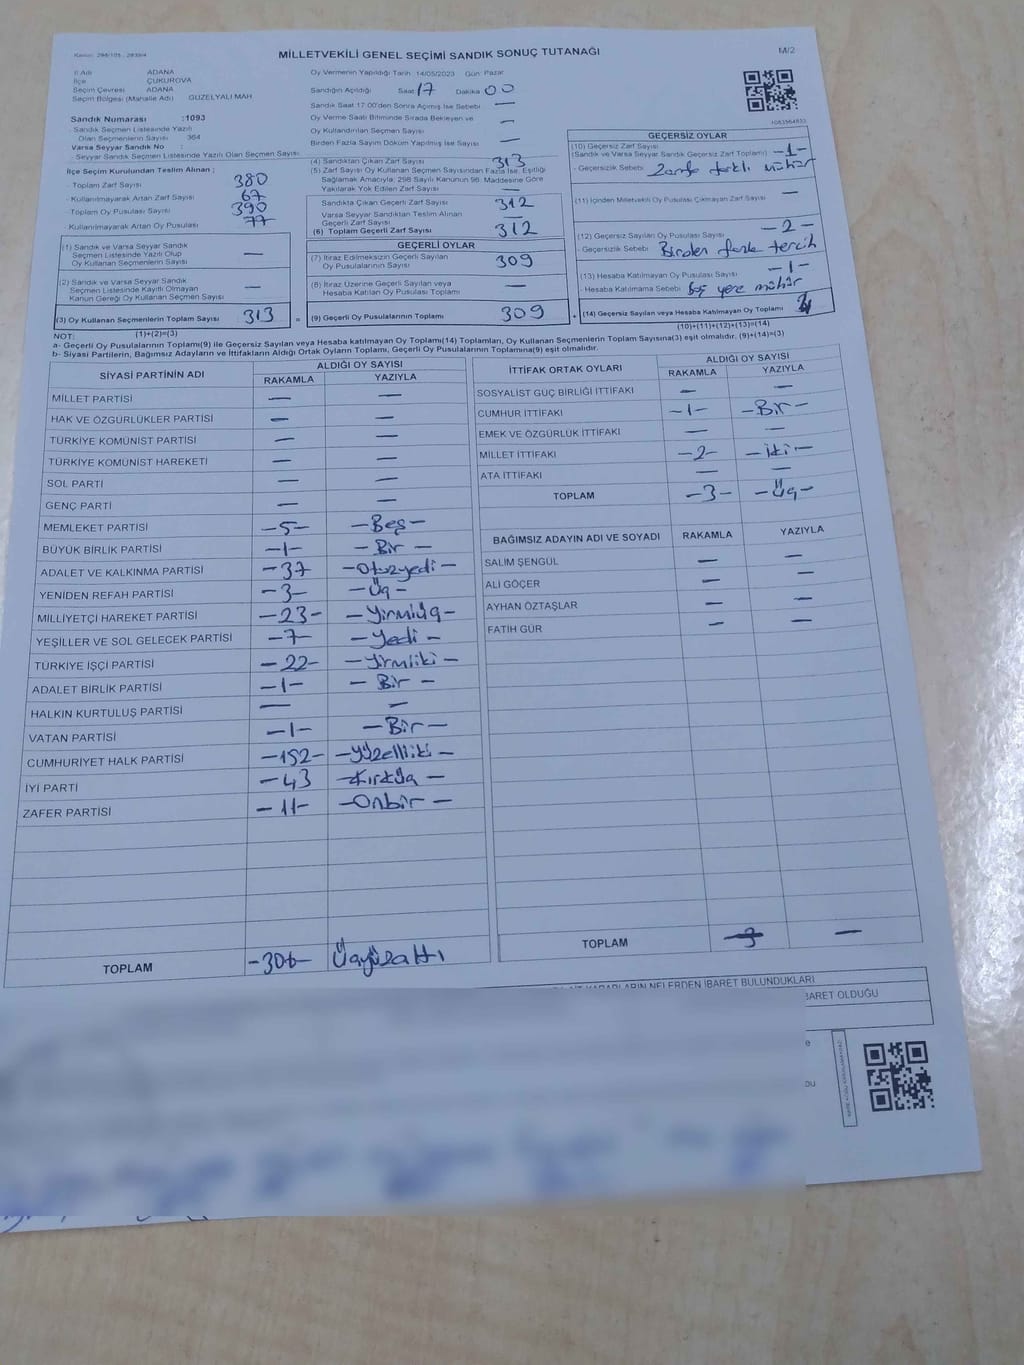 MİLLETVEKİLİ GENEL SEÇİMİ SANDIK SONUÇ TUTANAĞI
M/2
İl Adı ADANA
İlçe ÇUKUROVA
Seçim Çevresi ADANA
Seçim Bölgesi (Mahalle Adı) GÜZELYALI MAH
Sandık Numarası :1093
- Sandık Seçmen Listesinde Yazılı
Olan Seçmenlerin Sayısı 364
Varsa Seyyar Sandık No :
- Seyyar Sandık Seçmen Listesinde Yazılı Olan Seçmen Sayısı:
İlçe Seçim Kurulundan Teslim Alınan ;
- Toplam Zarf Sayısı 380
- Kullanılmayarak Artan Zarf Sayısı 67
- Toplam Oy Pusulası Sayısı 390
- Kullanılmayarak Artan Oy Pusulası 77
(1) Sandık ve Varsa Seyyar Sandık
Seçmen Listesinde Yazılı Olup
Oy Kullanan Seçmenlerin Sayısı —
(2) Sandık ve Varsa Seyyar Sandık
Seçmen Listesinde Kayıtlı Olmayan
Kanun Gereği Oy Kullanan Seçmen Sayısı —
(3) Oy Kullanan Seçmenlerin Toplam Sayısı 313
(1)+(2)=(3)
Oy Vermenin Yapıldığı Tarih 14/05/2023 Gün: Pazar
Sandığın Açıldığı Saat 17 Dakika 00
Sandık Saat 17:00'den Sonra Açılmış İse Sebebi —
Oy Verme Saati Bitiminde Sırada Bekleyen ve
Oy Kullandırılan Seçmen Sayısı —
Birden Fazla Sayım Döküm Yapılmış İse Sayısı —
(4) Sandıktan Çıkan Zarf Sayısı 313
(5) Zarf Sayısı Oy Kullanan Seçmen Sayısından Fazla İse, Eşitliği
Sağlamak Amacıyla, 298 Sayılı Kanunun 98. Maddesine Göre
Yakılarak Yok Edilen Zarf Sayısı —
Sandıkta Çıkan Geçerli Zarf Sayısı 312
Varsa Seyyar Sandıktan Teslim Alınan
Geçerli Zarf Sayısı —
(6) Toplam Geçerli Zarf Sayısı 312
GEÇERLİ OYLAR
(7) İtiraz Edilmeksizin Geçerli Sayılan
Oy Pusulalarının Sayısı 309
(8) İtiraz Üzerine Geçerli Sayılan veya
Hesaba Katılan Oy Pusulası Toplamı —
= (9) Geçerli Oy Pusulalarının Toplamı 309
GEÇERSİZ OYLAR
(10) Geçersiz Zarf Sayısı
(Sandık ve Varsa Seyyar Sandık Geçersiz Zarf Toplamı) -1-
- Geçersizlik Sebebi: Zarfa farklı mühür
(11) İçinden Milletvekili Oy Pusulası Çıkmayan Zarf Sayısı —
(12) Geçersiz Sayılan Oy Pusulası Sayısı -2-
- Geçersizlik Sebebi Birden fazla tercih
(13) Hesaba Katılmayan Oy Pusulası Sayısı -1-
- Hesaba Katılmama Sebebi boş yere mühür
+ (14) Geçersiz Sayılan veya Hesaba Katılmayan Oy Toplamı
(10)+(11)+(12)+(13)=(14)
NOT:
a- Geçerli Oy Pusulalarının Toplamı(9) ile Geçersiz Sayılan veya Hesaba katılmayan Oy Toplamı(14) Toplamları, Oy Kullanan Seçmenlerin Toplam Sayısına(3) eşit olmalıdır. (9)+(14)=(3)
b- Siyasi Partilerin, Bağımsız Adayların ve İttifakların Aldığı Ortak Oyların Toplamı, Geçerli Oy Pusulalarının Toplamına(9) eşit olmalıdır.
SİYASİ PARTİNİN ADI ALDIĞI OY SAYISI
RAKAMLA YAZIYLA
MİLLET PARTİSİ — —
HAK VE ÖZGÜRLÜKLER PARTİSİ — —
TÜRKİYE KOMÜNİST PARTİSİ — —
TÜRKİYE KOMÜNİST HAREKETİ — —
SOL PARTİ — —
GENÇ PARTİ — —
MEMLEKET PARTİSİ -5- -Beş-
BÜYÜK BİRLİK PARTİSİ -1- -Bir-
ADALET VE KALKINMA PARTİSİ -37 -Otuzyedi-
YENİDEN REFAH PARTİSİ -3- -Üç-
MİLLİYETÇİ HAREKET PARTİSİ -23- -Yirmiüç-
YEŞİLLER VE SOL GELECEK PARTİSİ -7- -Yedi-
TÜRKİYE İŞÇİ PARTİSİ -22- -Yirmiiki-
ADALET BİRLİK PARTİSİ -1- -Bir-
HALKIN KURTULUŞ PARTİSİ — —
VATAN PARTİSİ -1- -Bir-
CUMHURİYET HALK PARTİSİ -152- -Yüzelliiki-
İYİ PARTİ -43 -Kırküç-
ZAFER PARTİSİ -11- -Onbir-
TOPLAM -306- Üçyüzaltı
İTTİFAK ORTAK OYLARI ALDIĞI OY SAYISI
RAKAMLA YAZIYLA
SOSYALİST GÜÇ BİRLİĞİ İTTİFAKI — —
CUMHUR İTTİFAKI -1- -Bir-
EMEK VE ÖZGÜRLÜK İTTİFAKI — —
MİLLET İTTİFAKI -2- -iki-
ATA İTTİFAKI — —
TOPLAM -3- -Üç-
BAĞIMSIZ ADAYIN ADI VE SOYADI RAKAMLA YAZIYLA
SALİM ŞENGÜL — —
ALİ GÖÇER — —
AYHAN ÖZTAŞLAR — —
FATİH GÜR — —
TOPLAM 3 —
KARARLARIN NELERDEN İBARET BULUNDUKLARI
BARET OLDUĞU